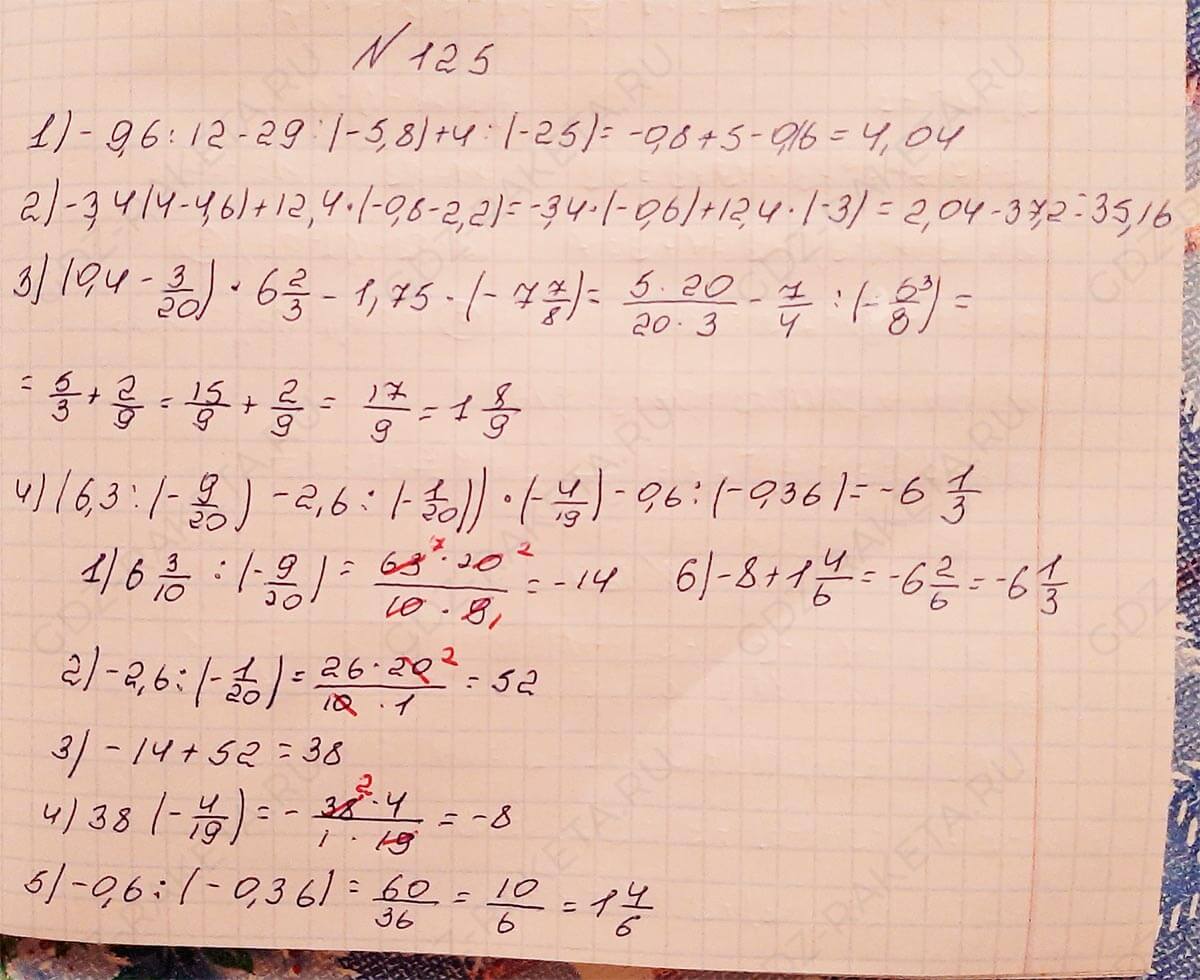 N 125
1) - 9,6 : 12 - 29 : (-5,8) + 4 : (-25) = -0,8 + 5 - 0,16 = 4,04
2) -3,4 (4 - 4,6) + 12,4 · (-0,8 - 2,2) = -3,4 · (-0,6) + 12,4 · (-3) = 2,04 - 37,2 = -35,16
3) (0,4 - 3/20) · 6 2/3 - 1,75 · (-7 7/8) = 5·20/20·3 - 7/4 : (-63/8) =
= 5/3 + 2/9 = 15/9 + 2/9 = 17/9 = 1 8/9
4) (6,3 : (-9/20) - 2,6 : (-1/20)) · (-4/19) - 0,6 : (-0,36) = -6 1/3
1) 6 3/10 : (-9/20) = 63 7 · 20 2/10 · 9 1 = -14 6) -8 + 1 4/6 = -6 2/6 = -6 1/3
2) -2,6 : (-1/20) = 26 · 20 2/10 · 1 = 52
3) -14 + 52 = 38
4) 38 (-4/19) = - 38 2 · 4/1 · 19 = -8
5) -0,6 : (-0,36) = 60/36 = 10/6 = 1 4/6
GDZ-RAKETA.RU